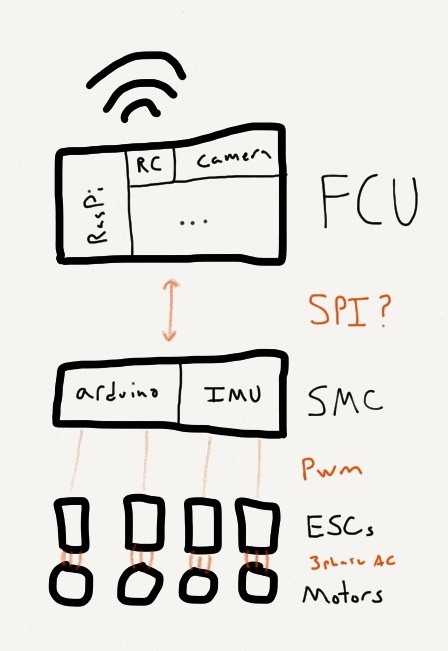 RC
Camera
RasPi
...
FCU
SPI?
arduino
IMU
SMC
Pwm
ESCs
3phase AC
Motors